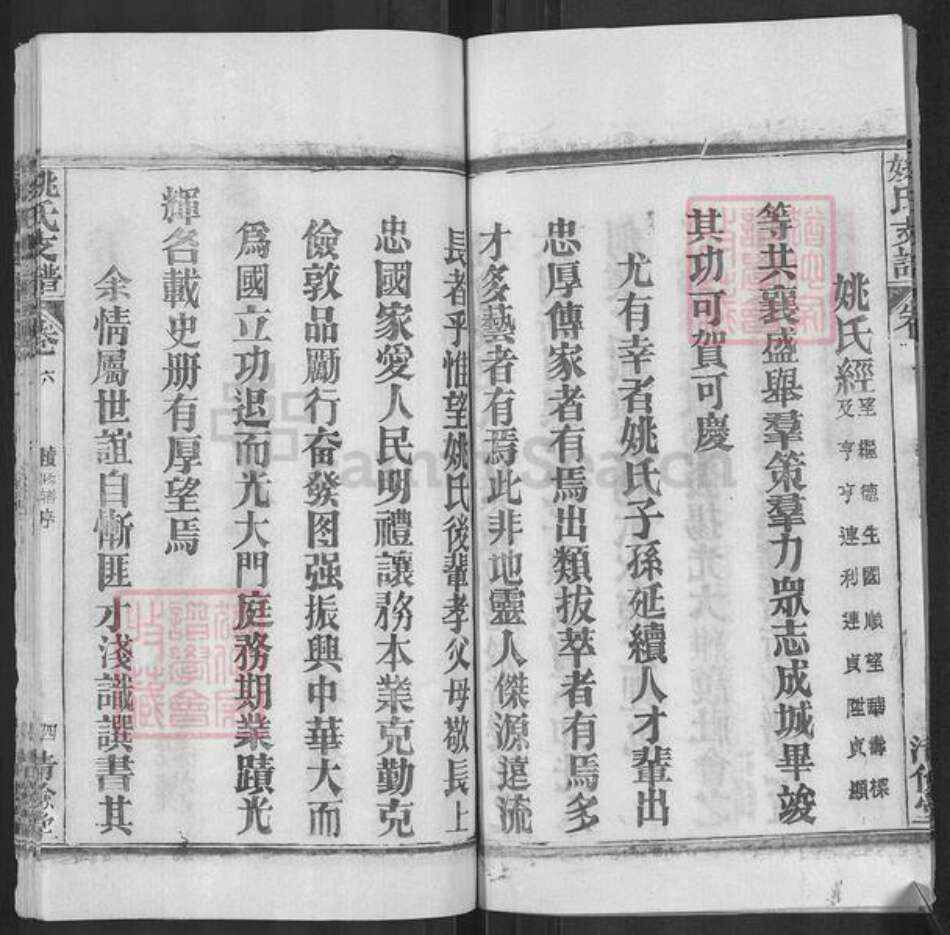 姚氏支譜
姚氏經
至繼德生國順望華壽標
及亨亨連利連貞陞貞顯
等共襄盛舉羣策羣力眾志成城畢竣
其功可賀可慶
尤有幸者姚氏子孫延續人才輩出
忠厚傳家者有焉出類拔萃者有焉多
才多藝者有焉此非地靈人傑源遠流
長者乎惟望姚氏後輩孝父母敬長上
忠國家愛人民明禮讓務本業克勤克
儉敦品勵行奋發图强振興中華大而
爲國立功退而光大門庭務期業蹟光
輝名載史册有厚望焉
余情屬世誼自慚匪才淺識譔書其
姚氏支譜
卷 六
序
四